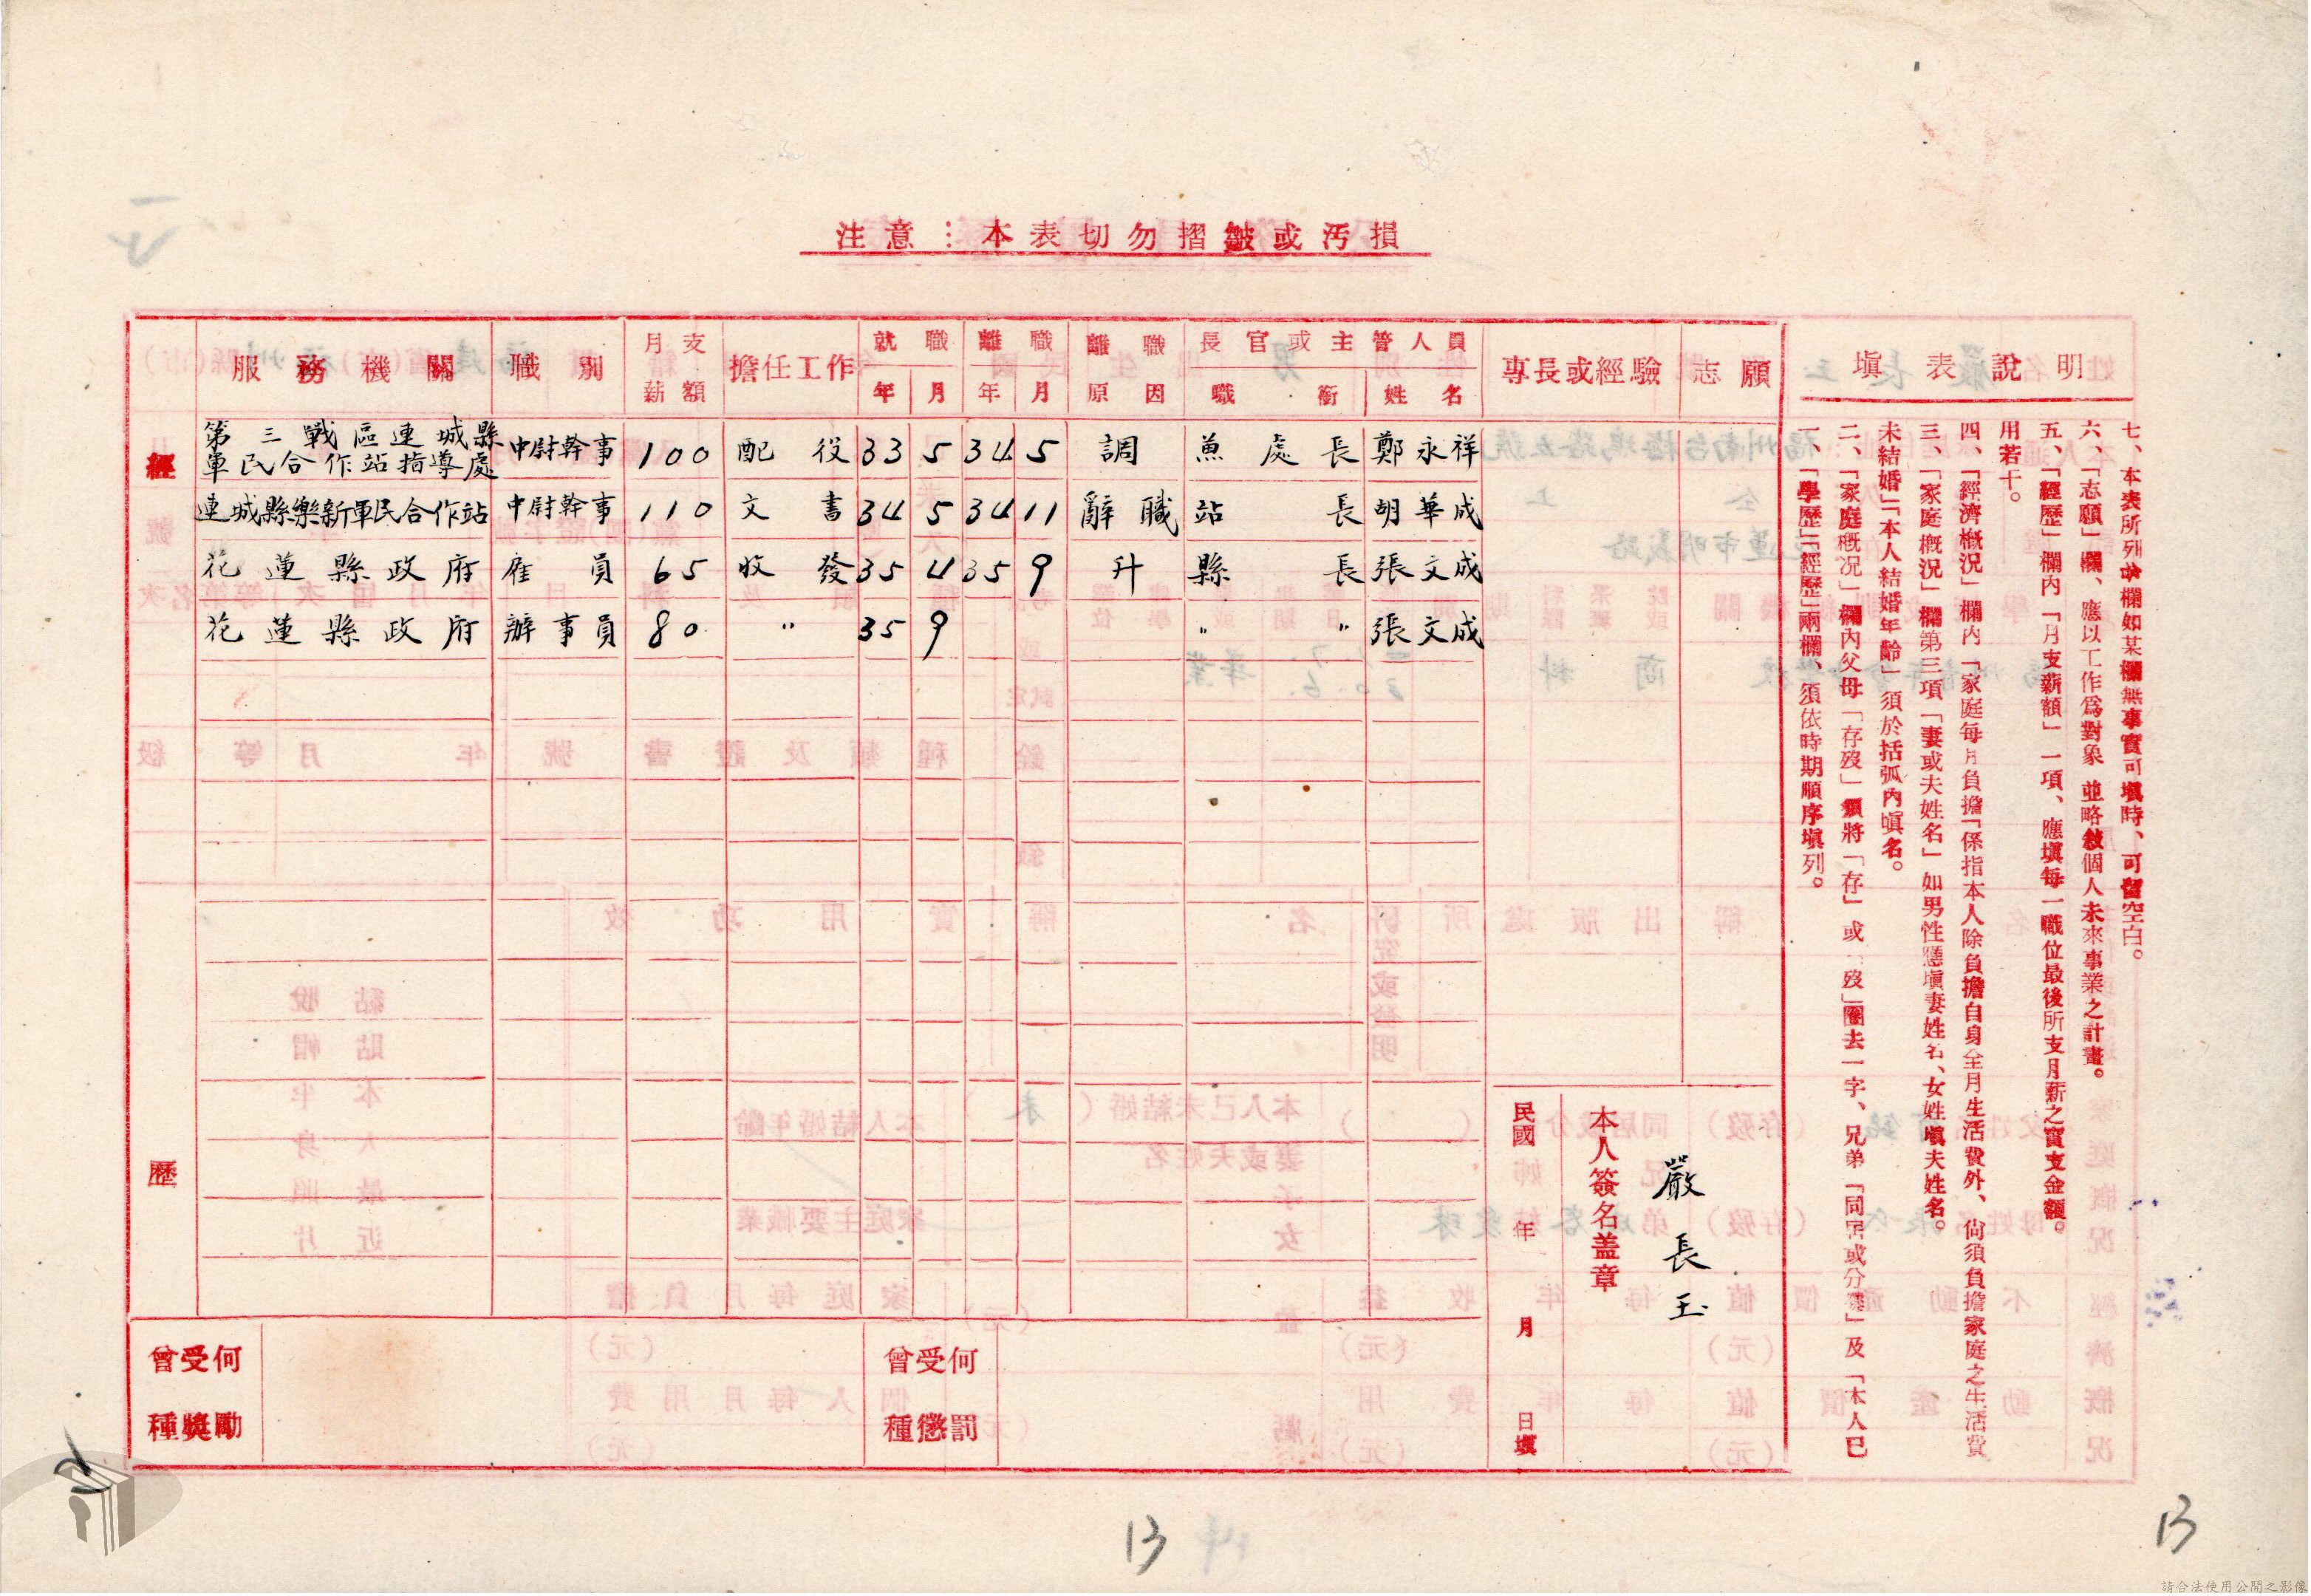 注意：本表切勿摺皺或汚損
服務機關 職別 月支薪額 擔任工作 就職年月 離職年月 離職原因 長官或主管人員職銜 姓名 專長或經驗 志願 填表說明
經歷
第三戰區連城縣軍民合作站指導處 中尉幹事 100 配役 33 5 34 5 調 兼處長 鄭永祥
連城縣樂新軍民合作站 中尉幹事 110 文書 34 5 34 11 辭職 站長 胡華成
花蓮縣政府 雇員 65 收發 35 4 35 9 升 縣長 張文成
花蓮縣政府 辦事員 80 〃 35 9 〃 〃 張文成
一、「學歷」「經歷」兩欄、須依時期順序填列。
二、「家庭概況」欄內父母「存歿」須將「存」或「歿」圈去一字、兄弟「同居或分爨」及「本人已
未結婚」「本人結婚年齡」須於括弧內填名。
三、「家庭概況」欄第三項「妻或夫姓名」如男性應填妻姓名、女姓填夫姓名。
四、「經濟概況」欄內「家庭每月負擔「係指本人除負擔自身全月生活費外、尙須負擔家庭之生活費
用若干。
五、「經歷」欄內「月支薪額」一項、應填每一職位最後所支月薪之實支金額。
六、「志願」欄、應以工作爲對象 並略敍個人未來事業之計畫。
七、本表所列各欄如某欄無事實可填時、可留空白。
本人簽名蓋章
嚴長玉
民國 年 月 日填
曾受何種獎勵
曾受何種懲罰
13
13
請合法使用公開之影像